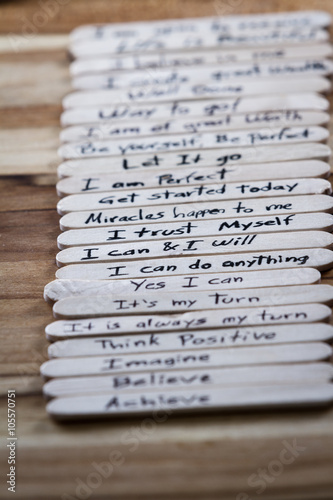 I believe in me
Well Done
Way to go!
I am of great Worth
Be yourself, Be Perfect
Let It go
I am Perfect
Get started Today
Miracles happen to me
I trust Myself
I can & I will
I can do anything
Yes I can
It's my Turn
It is always my turn
Think Positive
Imagine
Believe
Achieve
105570751